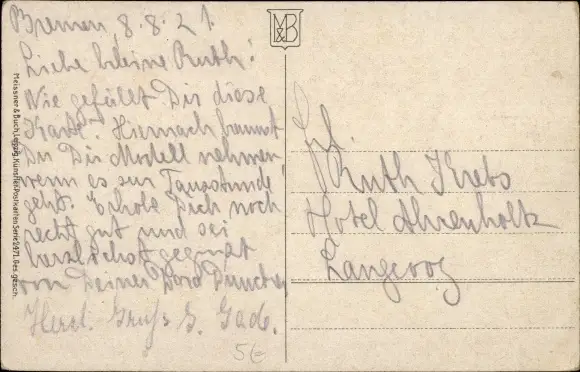 Bremen, 8.8.21.
Liebe kleine Ruth!
Wie gefällt Dir diese
Karte. Hiernach kannst
Du Dir Modell nehmen
wenn es zur Tanzstunde
geht. Erhole Dich noch
recht gut und sei
herzlichst gegrüsst
von Deiner Dora
Herzl. Gruß G. Gad.
5€
M&B
Frl.
Ruth Krebs
Hotel Ahrenholtz
Langeoog
Meissner & Buch, Leipzig. Künstler-Postkarten Serie 2471. Ges. gesch.